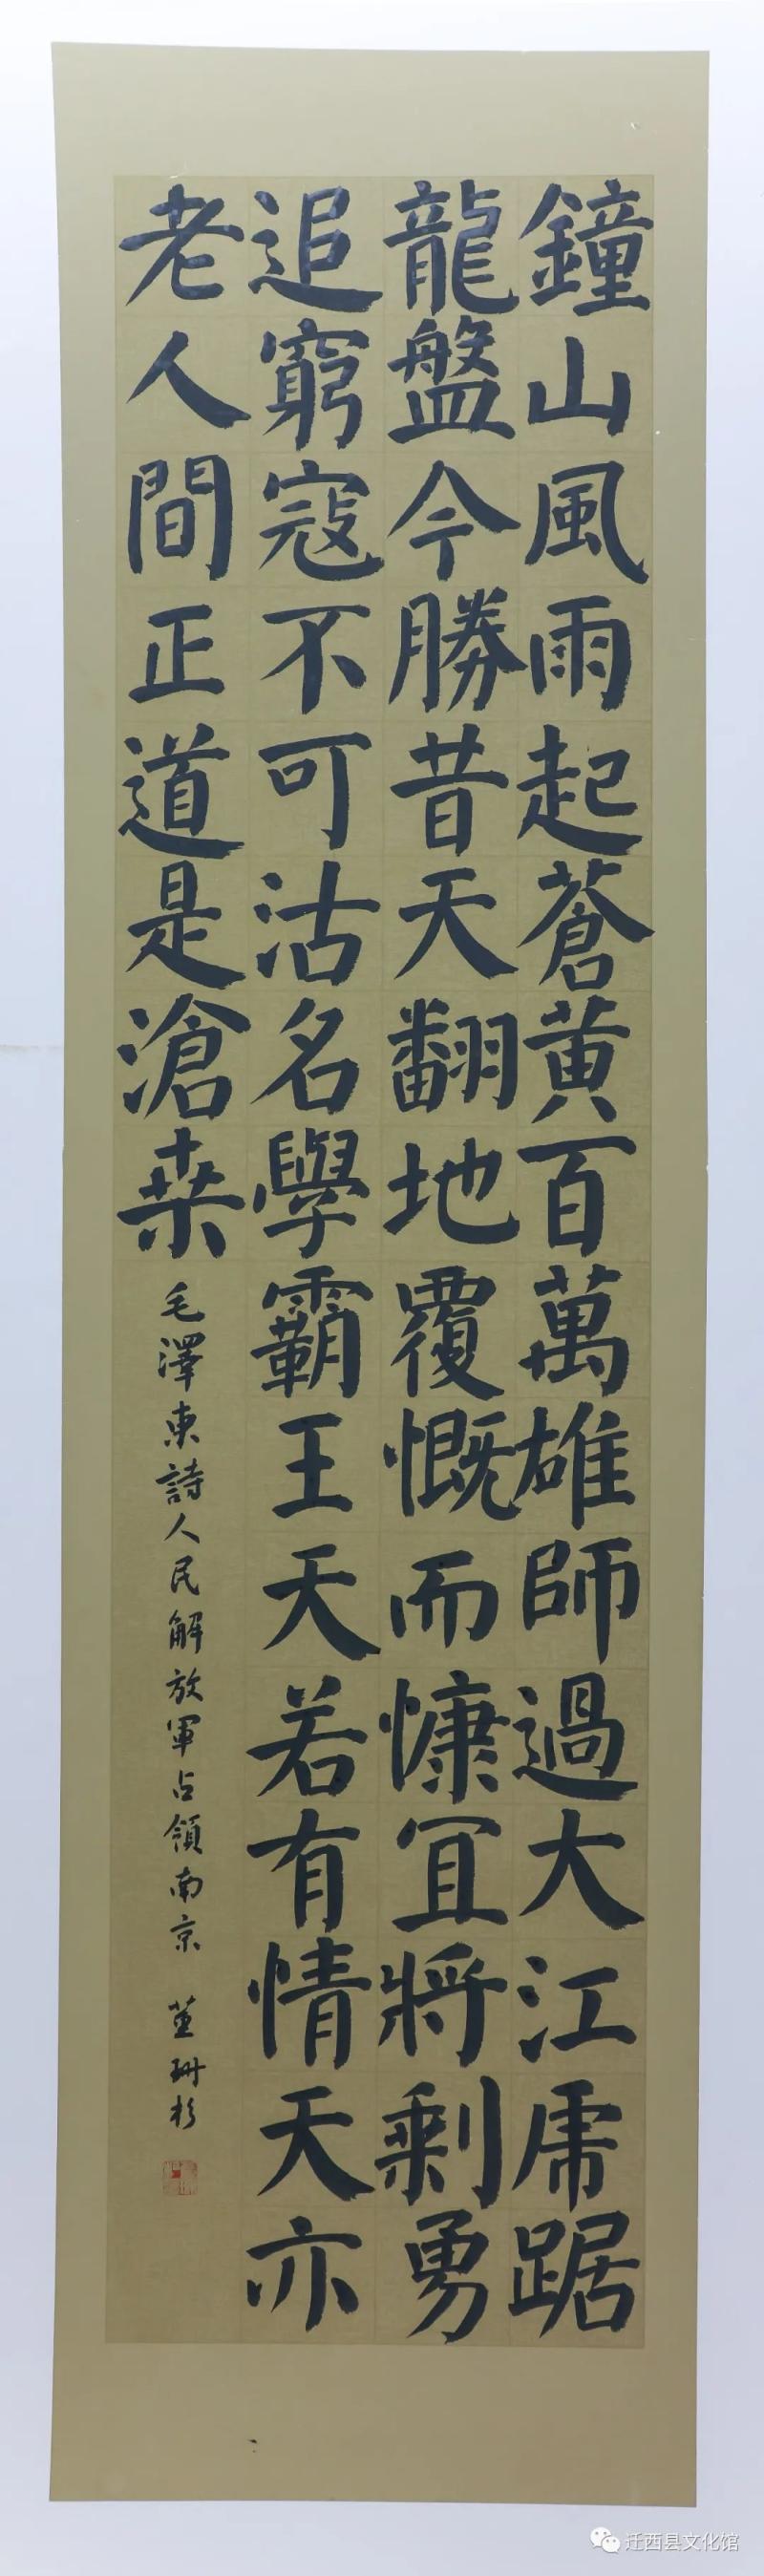 鐘山風雨起蒼黄百萬雄師過大江虎踞
龍盤今勝昔天翻地覆慨而慷宜將剩勇
追窮寇不可沽名學霸王天若有情天亦
老人間正道是滄桒
毛澤東詩人民解放軍占領南京
迁西县文化馆